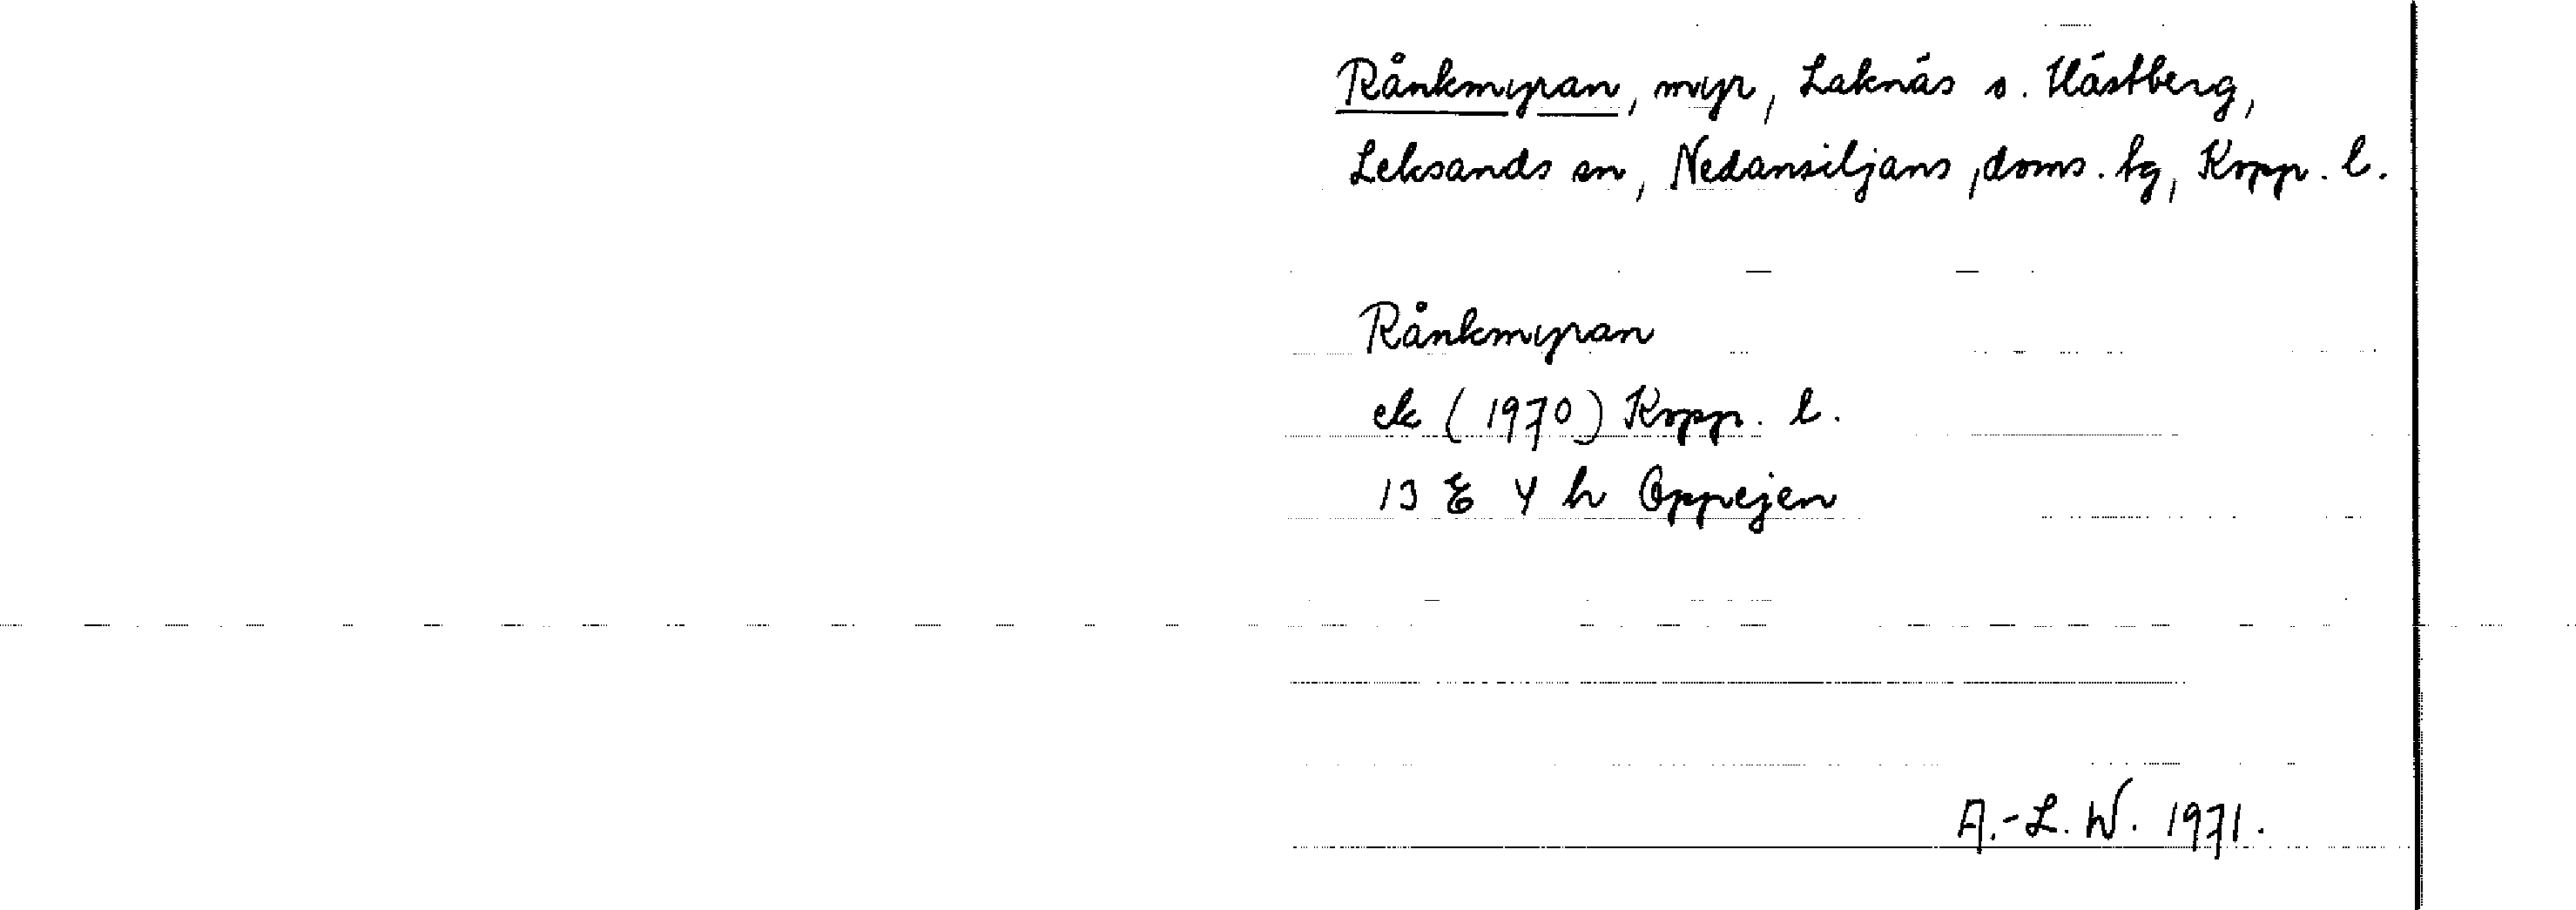 Rånkmyran, myr, Laknäs s. Hästberg,
Leksands sn, Nedansiljans ,doms. tg, Kopp. l.
Rånkmyran
ek (1970) Kopp. l.
13 E 4 h Oppejen
A.-L. W. 1971.